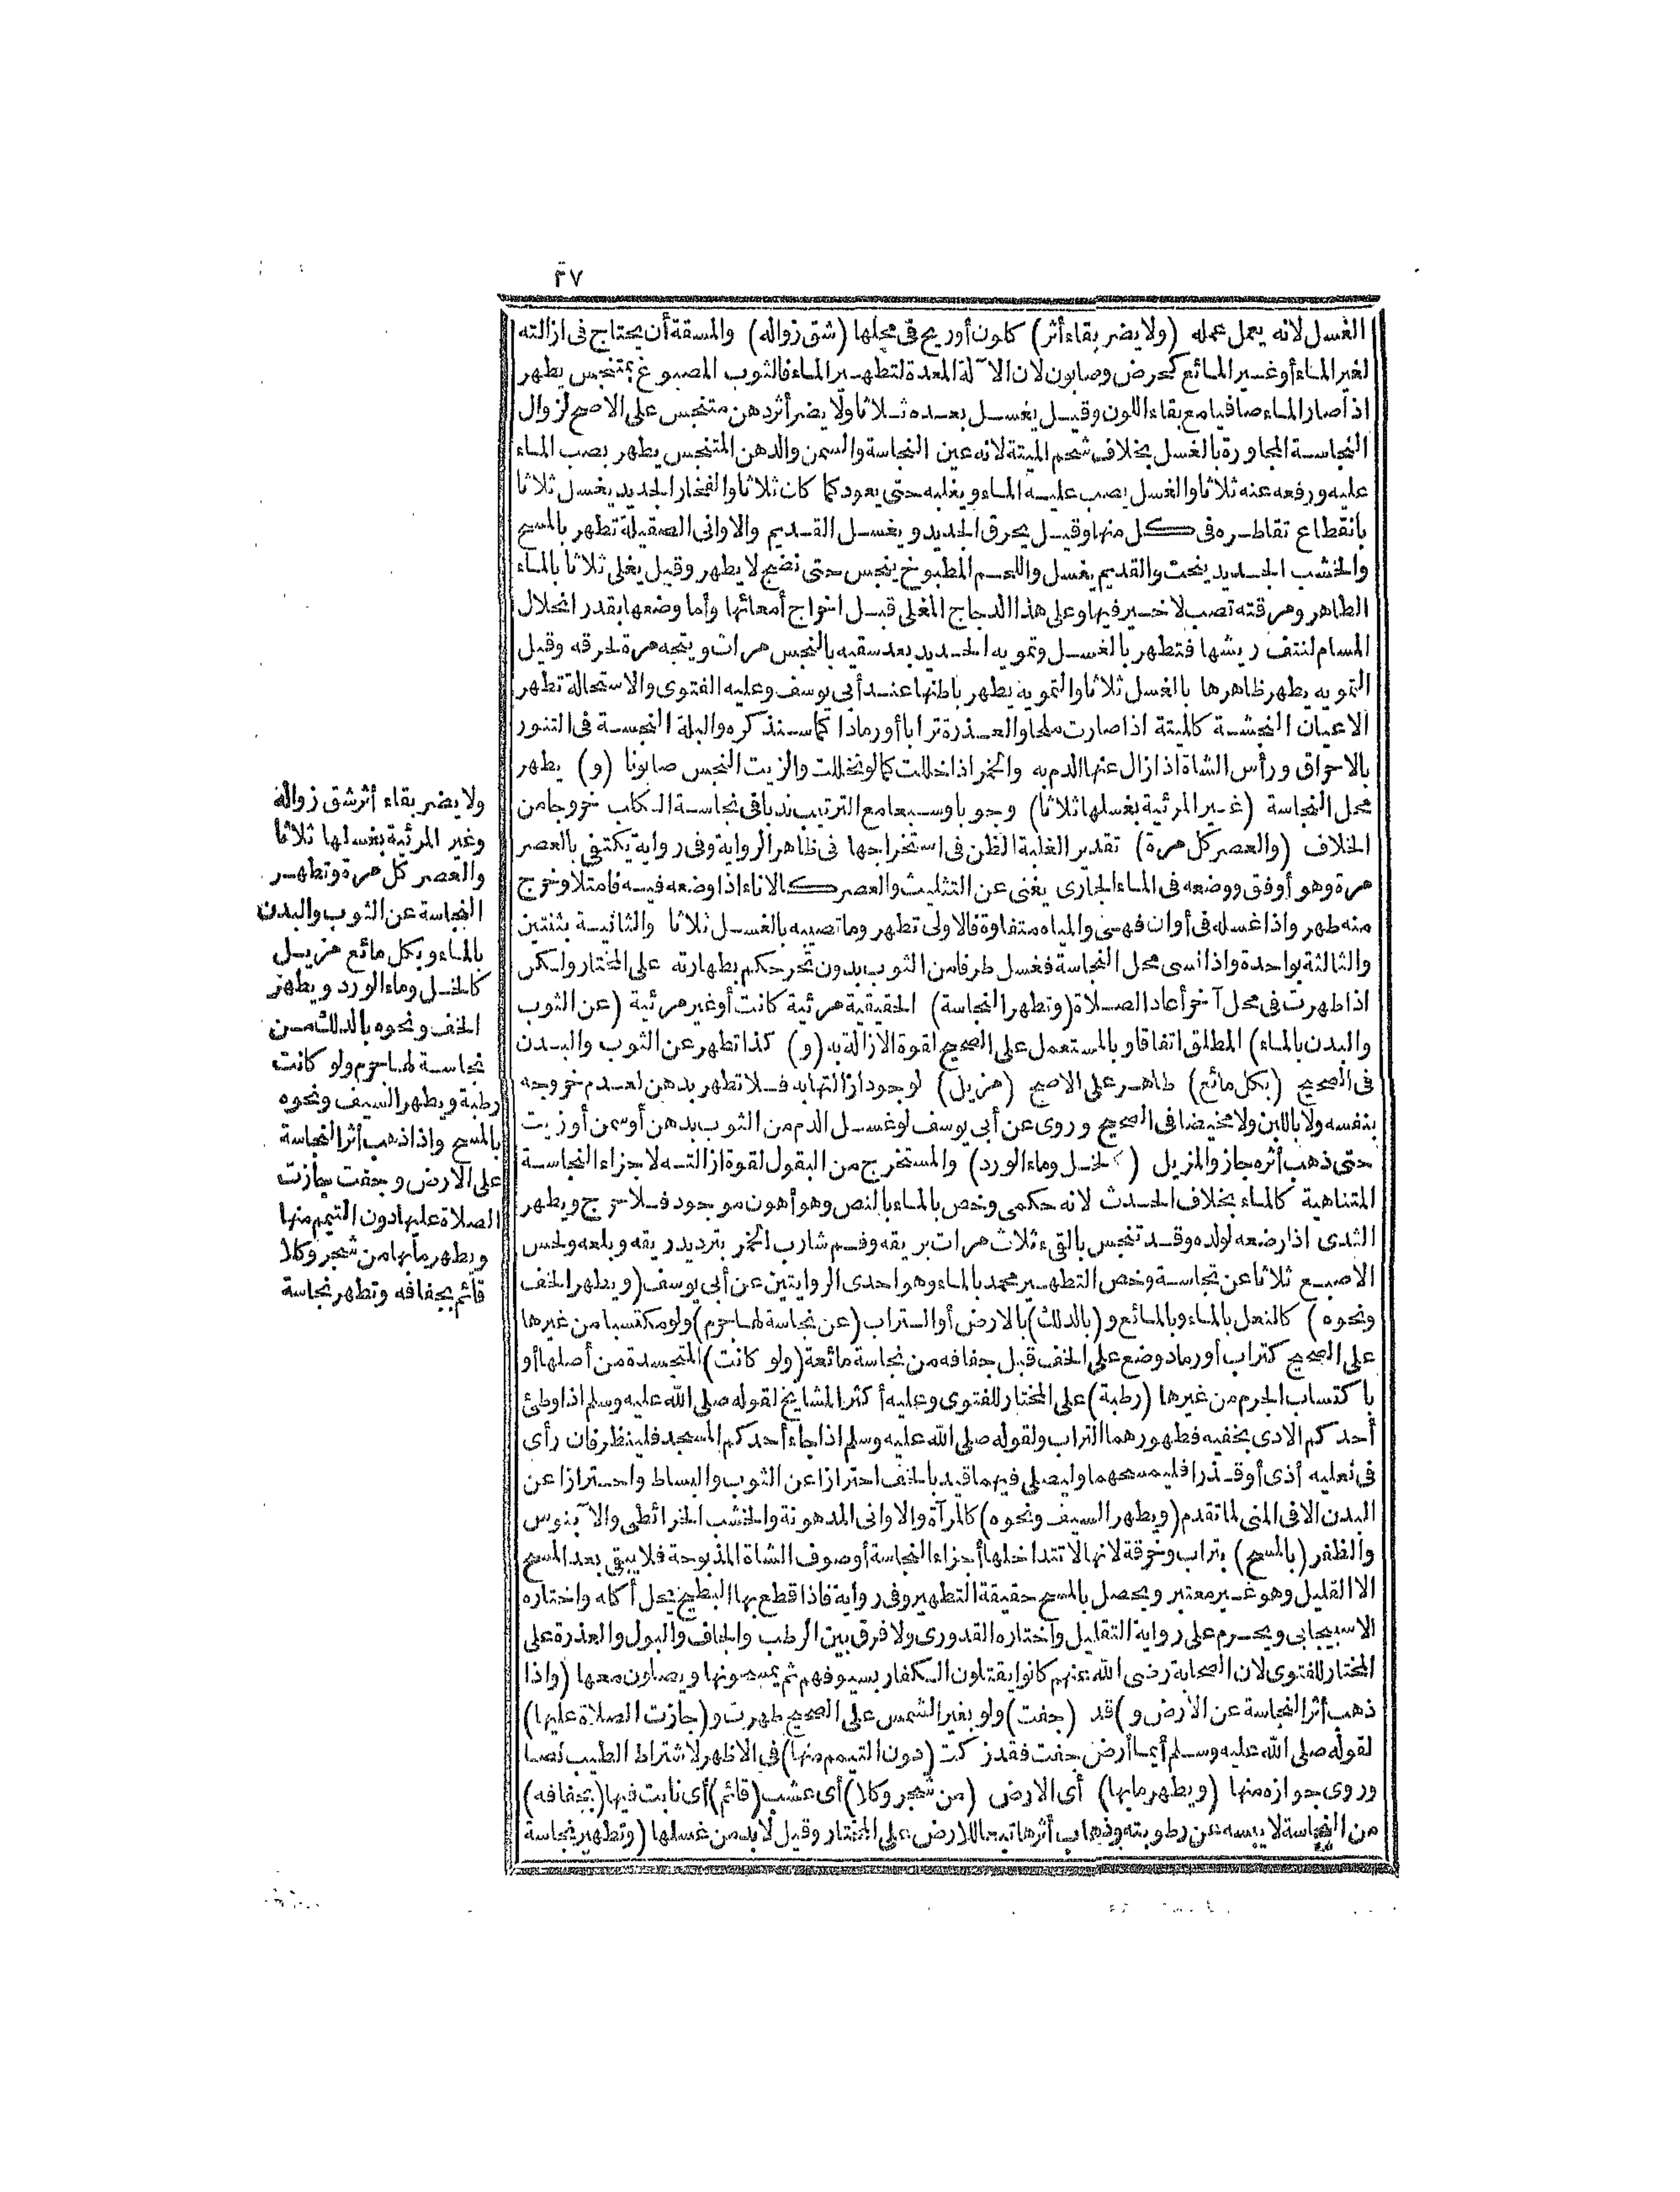 ٣٧
الغسل لانه يعمل عمله (ولا يضر بقاء أثر) كلون أو ريح فى محلها (شق زواله) والمسقة أن يحتاج فى ازالته
لغير الماء أو غير المائع كحرض وصابون لان الآلة المعدة لتطهير الماء فالثوب المصبوغ بمتنجس يطهر
اذا صار الماء صافيا مع بقاء اللون وقيل يغسل بعده ثلاثا ولا يضر أثر دهن متنجس على الاصح لزوال
النجاسة المجاورة بالغسل بخلاف شحم الميتة لانه عين النجاسة والسمن والدهن المتنجس يطهر بصب الماء
عليه ورفعه عنه ثلاثا والعسل يصب عليه الماء ويغليه حتى يعود كما كان ثلاثا والفخار الجديد يغسل ثلاثا
بانقطاع تقاطره فى كل منها وقيل يحرق الجديد ويغسل القديم والاوانى الصقيلة تطهر بالمسح
والخشب الجديد ينحت والقديم يغسل واللحم المطبوخ بنجس حتى نضج لا يطهر وقيل يغلى ثلاثا بالماء
الطاهر ومرقته تصب لا خير فيها وعلى هذا الدجاج المغلى قبل اخراج أمعائها وأما وضعها بقدر انحلال
المسام لنتف ريشها فتطهر بالغسل وتمويه الحديد بعد سقيه بالنجس مرات ويتجه مرة لحرقه وقيل
التمويه يطهر ظاهرها بالغسل ثلاثا والتمويه يطهر باطنها عند أبى يوسف وعليه الفتوى والاستحالة تطهر
الاعيان النجسة كالميتة اذا صارت ملحا والعذرة ترابا أو رمادا كما سنذكره والبلة النجسة فى التنور
بالاحراق ورأس الشاة اذا زال عنها الدم به والخمر اذا خللت كما لو تخللت والزيت النجس صابونا (و) يطهر
محل النجاسة (غير المرئية بغسلها ثلاثا) وجوبا وسبعا مع الترتيب ندبا فى نجاسة الكلب خروجا من
الخلاف (والعصر كل مرة) تقديرا لغلبة الظن فى استخراجها فى ظاهر الرواية وفى رواية يكتفى بالعصر
مرة وهو أوفق ووضعه فى الماء الجارى يغنى عن التثليث والعصر كالاناء اذا وضعه فيه فامتلا وخرج
منه طهر واذا غسله فى أوان فهى والمياه متفاوتة فالاولى تطهر وما تصيبه بالغسل ثلاثا والثانية بثنتين
والثالثة بواحدة واذا نسى محل النجاسة فغسل طرفا من الثوب بدون تحر حكم بطهارته على المختار ولكن
اذا ظهرت فى محل آخر أعاد الصلاة (وتطهر النجاسة) الحقيقية مرئية كانت أو غير مرئية (عن الثوب
والبدن بالماء) المطلق اتفاقا وبالمستعمل على الصحيح لقوة الازالة به (و) كذا تطهر عن الثوب والبدن
فى الصحيح (بكل مائع) طاهر على الاصح (مزيل) لوجود ازالتها به فلا تطهر بدهن لعدم خروجه
بنفسه ولا باللبن ولا مخيضا فى الصحيح وروى عن أبى يوسف لو غسل الدم من الثوب بدهن أو سمن أو زيت
حتى ذهب أثره جاز والمزيل (كالخل وماء الورد) والمستخرج من البقول لقوة ازالته لاجزاء النجاسة
المتناهية كالماء بخلاف الحدث لانه حكمى وخص بالماء بالنص وهو أهون موجود فلا حرج ويطهر
الثدى اذا رضعه لولده وقد تنجس بالقىء ثلاث مرات بريقه وفم شارب الخمر بترديد ريقه وبلعه ولحس
الاصبع ثلاثا عن نجاسة وخص التطهير محمد بالماء وهو احدى الروايتين عن أبى يوسف (ويطهر الخف
ونحوه) كالنعل بالماء وبالمائع و (بالدلك) بالارض أو التراب (عن نجاسة لها جرم) ولو مكتسبا من غيرها
على الصحيح كتراب أو رماد وضع على الخف قبل جفافه من نجاسة مائعة (ولو كانت) المتجسدة من أصلها أو
باكتساب الجرم من غيرها (رطبة) على المختار للفتوى وعليه أكثر المشايخ لقوله صلى الله عليه وسلم اذا وطئ
أحدكم الاذى بخفيه فطهورهما التراب ولقوله صلى الله عليه وسلم اذا جاء أحدكم المسجد فلينظر فان رأى
فى نعليه أذى أو قذرا فليمسحهما وليصلى فيهما قيد بالخف احترازا عن الثوب والبساط واحترازا عن
البدن الا فى المنى لما تقدم (ويطهر السيف ونحوه) كالمرآة والاوانى المدهونة والخشب الخرائطى والآبنوس
والظفر (بالمسح) بتراب وخرقة لانها لا تتداخلها أجزاء النجاسة أو صوف الشاة المذبوحة فلا يبقى بعد المسح
الا القليل وهو غير معتبر ويحصل بالمسح حقيقة التطهير وفى رواية فاذا قطع بها البطيخ يحل أكله واختاره
الاسبيجابى ويحرم على رواية التقليل واختاره القدورى ولا فرق بين الرطب والجاف والبول والعذرة على
المختار للفتوى لان الصحابة رضى الله عنهم كانوا يقتلون الكفار بسيوفهم ثم يمسحونها ويصلون معها (واذا
ذهب أثر النجاسة عن الارض و) قد (جفت) ولو بغير الشمس على الصحيح طهرت و (جازت الصلاة عليها)
لقوله صلى الله عليه وسلم أيما أرض جفت فقد زكت (دون التيمم منها) فى الاظهر لاشتراط الطيب نصا
وروى جوازه منها (ويطهر ما بها) أى الارض (من شجر وكلا) أى عشب (قائم) أى نابت فيها (بجفافه)
من النجاسة لا يبسه عن رطوبته وذهاب أثرها تبعا للارض على المختار وقيل لا بد من غسلها (وتطهير نجاسة
ولا يضر بقاء أثر شق زواله
وغير المرئية بغسلها ثلاثا
والعصر كل مرة وتطهر
النجاسة عن الثوب والبدن
بالماء وبكل مائع مزيل
كالخل وماء الورد ويطهر
الخف ونحوه بالدلك من
نجاسة لها جرم ولو كانت
رطبة ويطهر السيف ونحوه
بالمسح واذا ذهب أثر النجاسة
على الارض وجفت جازت
الصلاة عليها دون التيمم منها
ويطهر ما بها من شجر وكلا
قائم بجفافه وتطهر نجاسة